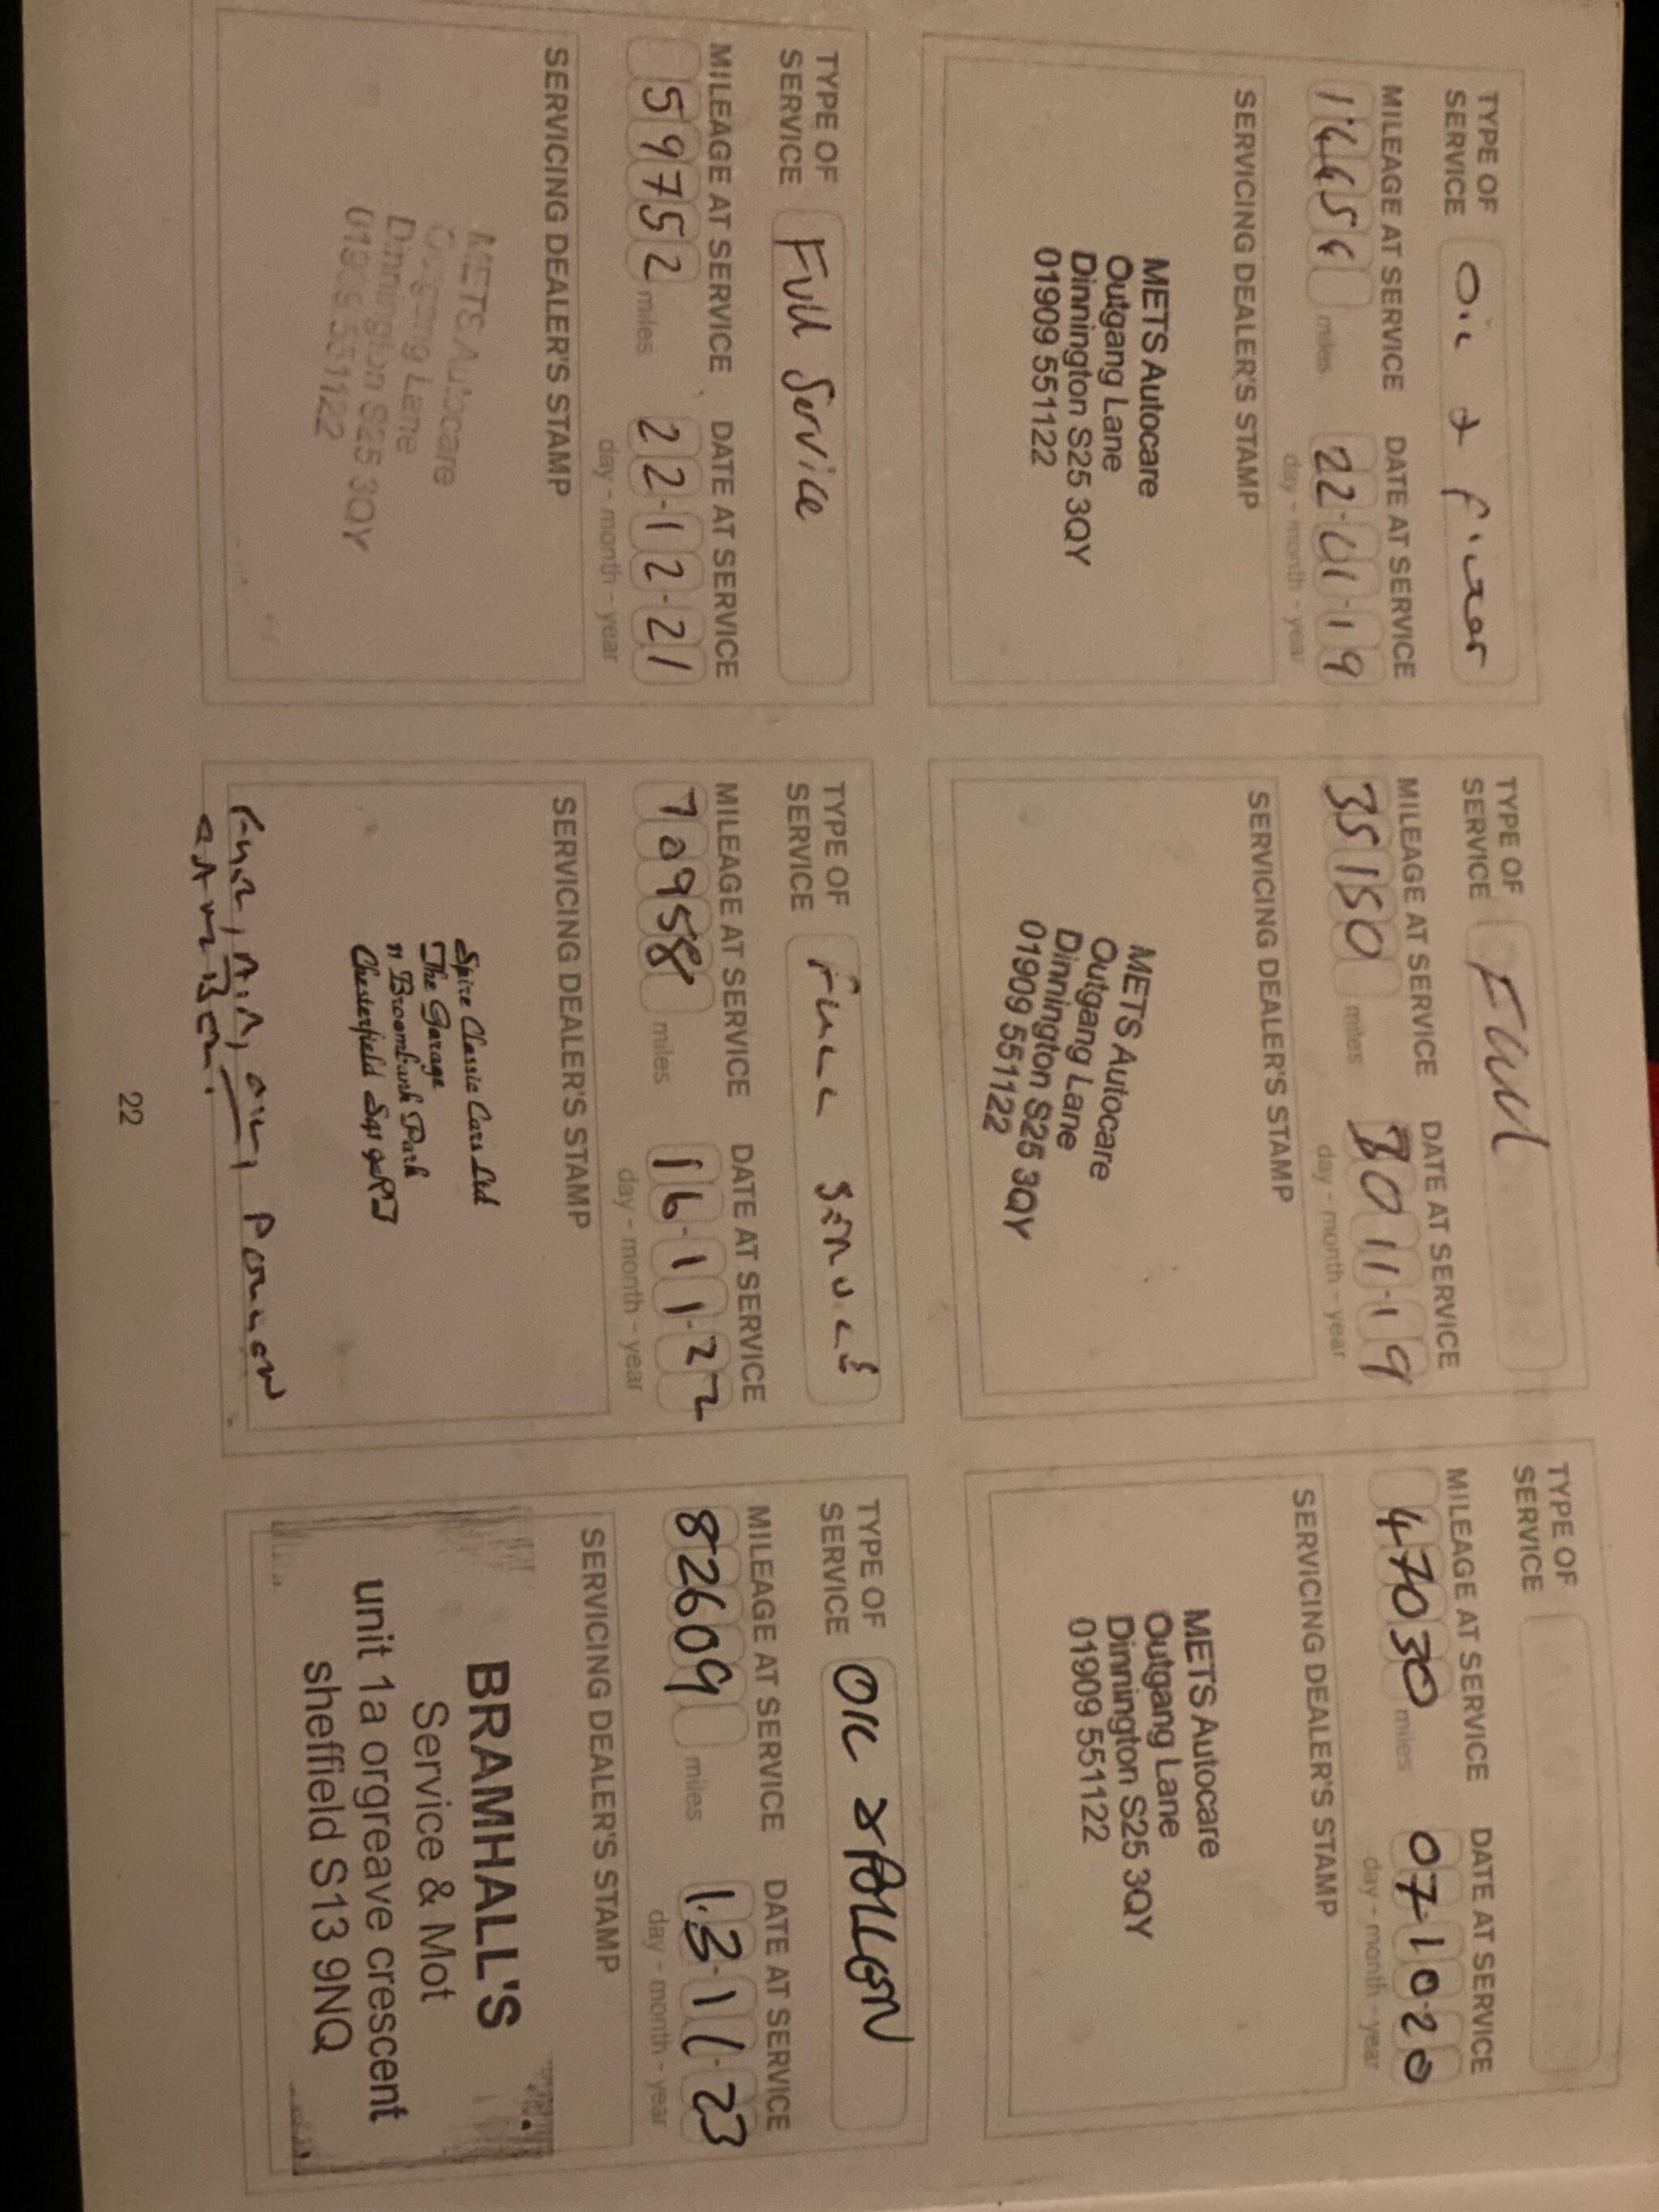 TYPE OF
SERVICE
Oil & Filter
MILEAGE AT SERVICE
DATE AT SERVICE
miles
22-01-19
day - month - year
SERVICING DEALER'S STAMP
METS Autocare
Outgang Lane
Dinnington S25 3QY
01909 551122
TYPE OF
SERVICE
Full
MILEAGE AT SERVICE
DATE AT SERVICE
35150
miles
30 11-19
day - month - year
SERVICING DEALER'S STAMP
METS Autocare
Outgang Lane
Dinnington S25 3QY
01909 551122
TYPE OF
SERVICE
MILEAGE AT SERVICE
DATE AT SERVICE
47030
miles
07-10-20
day - month - year
SERVICING DEALER'S STAMP
METS Autocare
Outgang Lane
Dinnington S25 3QY
01909 551122
TYPE OF
SERVICE
Full Service
MILEAGE AT SERVICE
DATE AT SERVICE
59752
miles
22-12-21
day - month - year
SERVICING DEALER'S STAMP
METS Autocare
Outgang Lane
Dinnington S25 3QY
01909 551122
TYPE OF
SERVICE
Full Service
MILEAGE AT SERVICE
DATE AT SERVICE
70958
miles
16-11-22
day - month - year
SERVICING DEALER'S STAMP
Spire Classic Cars Ltd
The Garage
11 Broombank Park
Chesterfield S41 9RT
Fuel, Air, Oil, Pollen
TYPE OF
SERVICE
OIL & POLLEN
MILEAGE AT SERVICE
DATE AT SERVICE
82609
miles
13-11-23
day - month - year
SERVICING DEALER'S STAMP
BRAMHALL'S
Service & Mot
unit 1a orgreave crescent
sheffield S13 9NQ
22